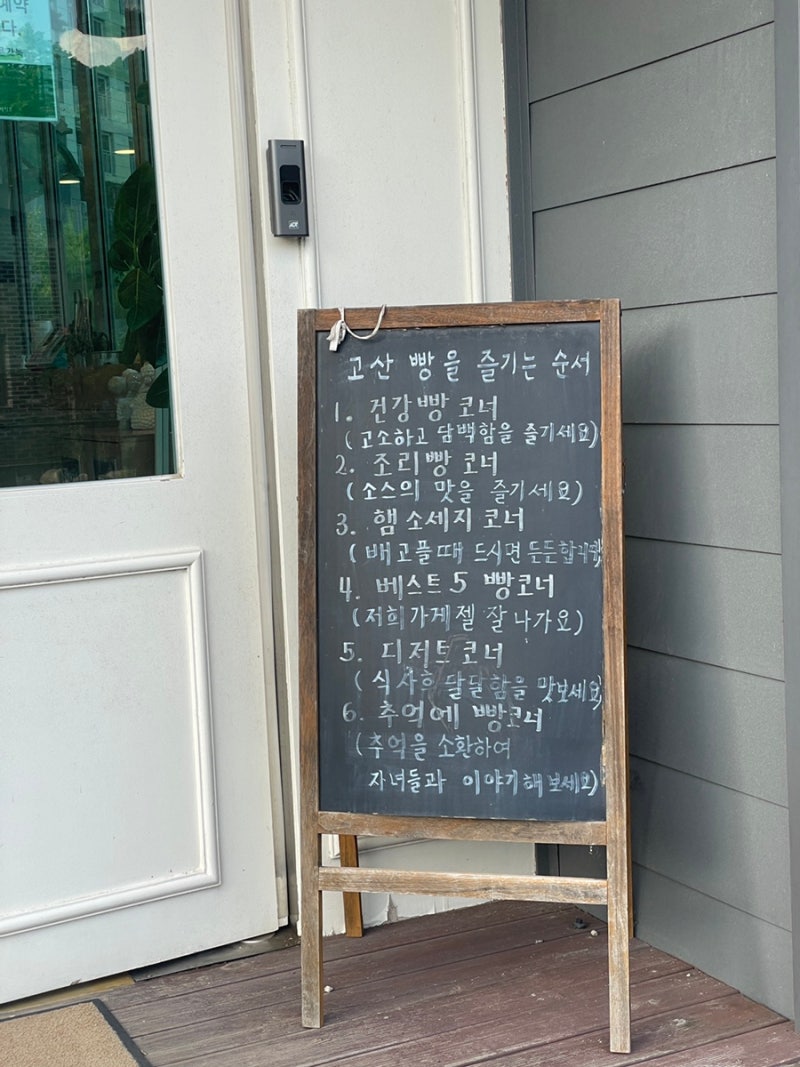 약
다.
고산 빵을 즐기는 순서
1. 건강빵 코너
(고소하고 담백함을 즐기세요)
2. 조리빵 코너
(소스의 맛을 즐기세요)
3. 햄 소세지 코너
(배고플때 드시면 든든합니다)
4. 베스트5 빵코너
(저희가게 젤 잘 나가요)
5. 디저트 코너
(식사후 달달함을 맛보세요)
6. 추억에 빵코너
(추억을 소환하여
자녀들과 이야기해 보세요)